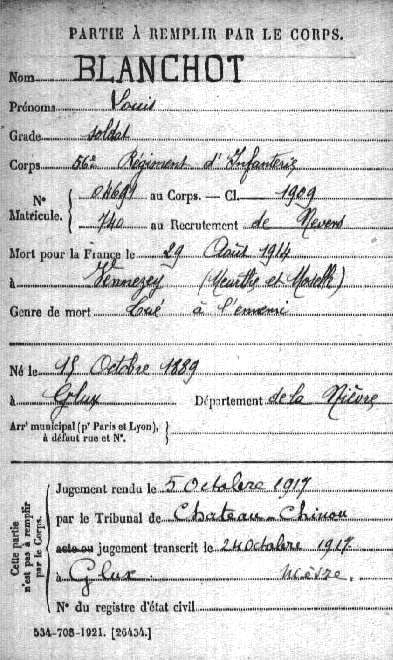 PARTIE À REMPLIR PAR LE CORPS.
Nom BLANCHOT
Prénoms Louis
Grade soldat
Corps 56e Régiment d'Infanterie
N° Matricule. { 04691 au Corps. — Cl. 1909
740 au Recrutement de Nevers
Mort pour la France le 29 Août 1914
à Vennezey (Meurthe et Moselle)
Genre de mort Tué à l'ennemi
Né le 15 Octobre 1889
à Glux Département de la Nièvre
Arrt municipal (pr Paris et Lyon), à défaut rue et N°. }
Cette partie n'est pas à remplir par le Corps.
Jugement rendu le 5 Octobre 1917
par le Tribunal de Chateau-Chinon
acte ou jugement transcrit le 24 Octobre 1917
à Glux Nièvre.
N° du registre d'état civil
534-708-1921. [26434.]